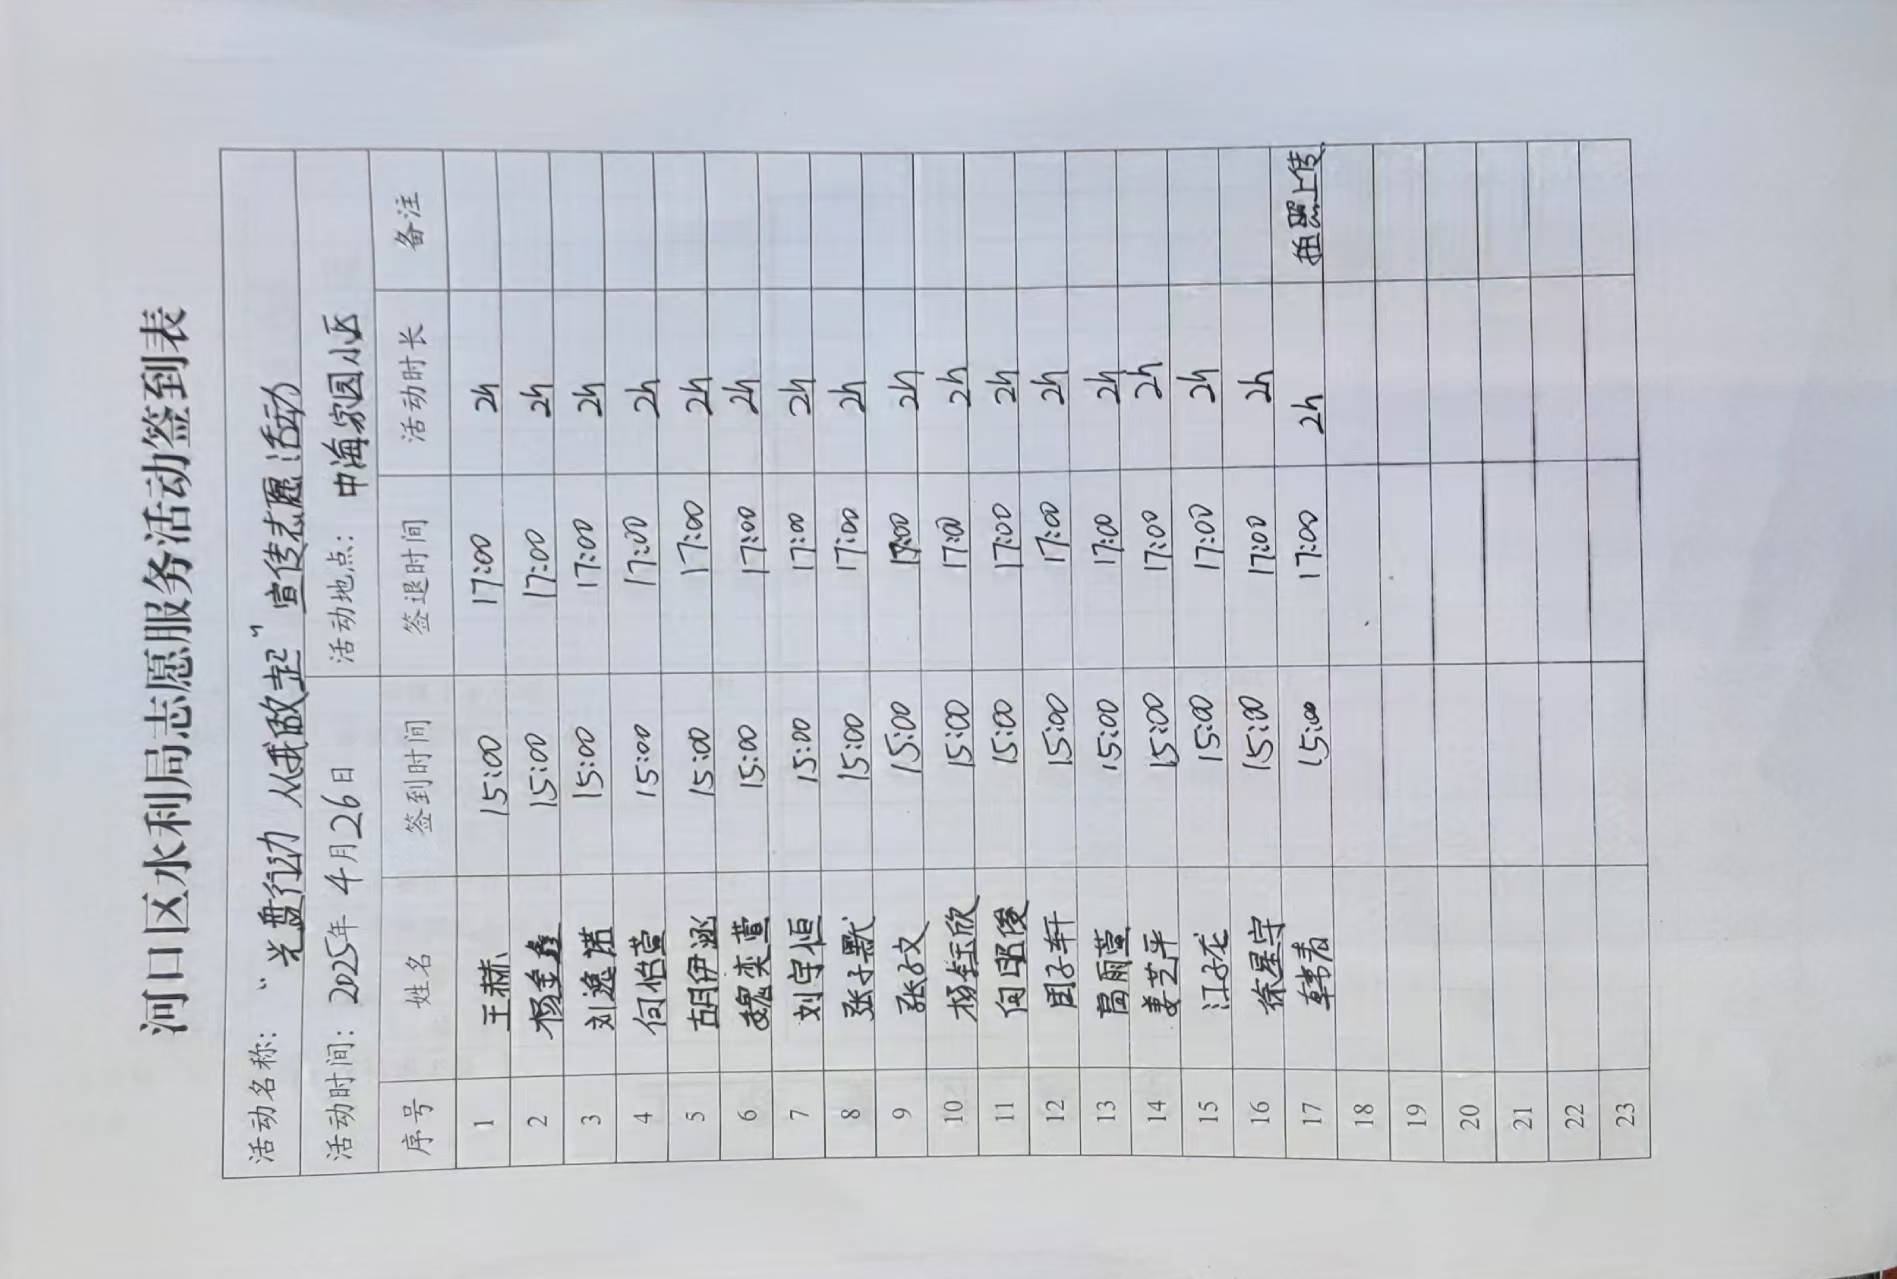 河口区水利局志愿服务活动签到表
活动名称： “光盘行动 从我做起” 宣传志愿活动
活动时间： 2025年 4月26日 活动地点： 中海家园小区
序号 姓名 签到时间 签退时间 活动时长 备注
1 王赫 15:00 17:00 2h
2 杨金鑫 15:00 17:00 2h
3 刘逸诺 15:00 17:00 2h
4 何怡萱 15:00 17:00 2h
5 胡伊涵 15:00 17:00 2h
6 魏奕萱 15:00 17:00 2h
7 刘宇恒 15:00 17:00 2h
8 张子默 15:00 17:00 2h
9 张文 15:00 17:00 2h
10 杨钰欣 15:00 17:00 2h
11 何俊 15:00 17:00 2h
12 周子轩 15:00 17:00 2h
13 雨萱 15:00 17:00 2h
14 姜艺平 15:00 17:00 2h
15 江子龙 15:00 17:00 2h
16 徐星宇 15:00 17:00 2h
17 韩春 15:00 17:00 2h 拍照上传
18
19
20
21
22
23